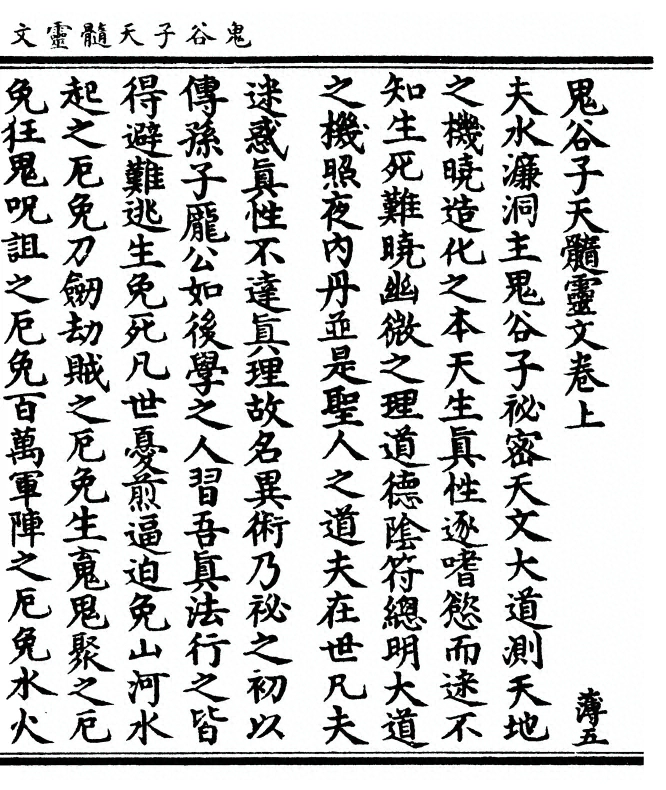 鬼谷子天髓靈文
鬼谷子天髓靈文卷上
薄五
夫水濂洞主鬼谷子祕密天文大道測天地
之機曉造化之本天生眞性逐嗜慾而迷不
知生死難曉幽微之理道德陰符總明大道
之機照夜內丹並是聖人之道夫在世凡夫
迷惑眞性不達眞理故名異術乃祕之初以
傳孫子龐公如後學之人習吾眞法行之皆
得避難逃生免死凡世憂煎逼迫免山河水
起之厄免刀劒劫賊之厄免生鬼聚之厄
免狂鬼呪詛之厄免百萬軍陣之厄免水火